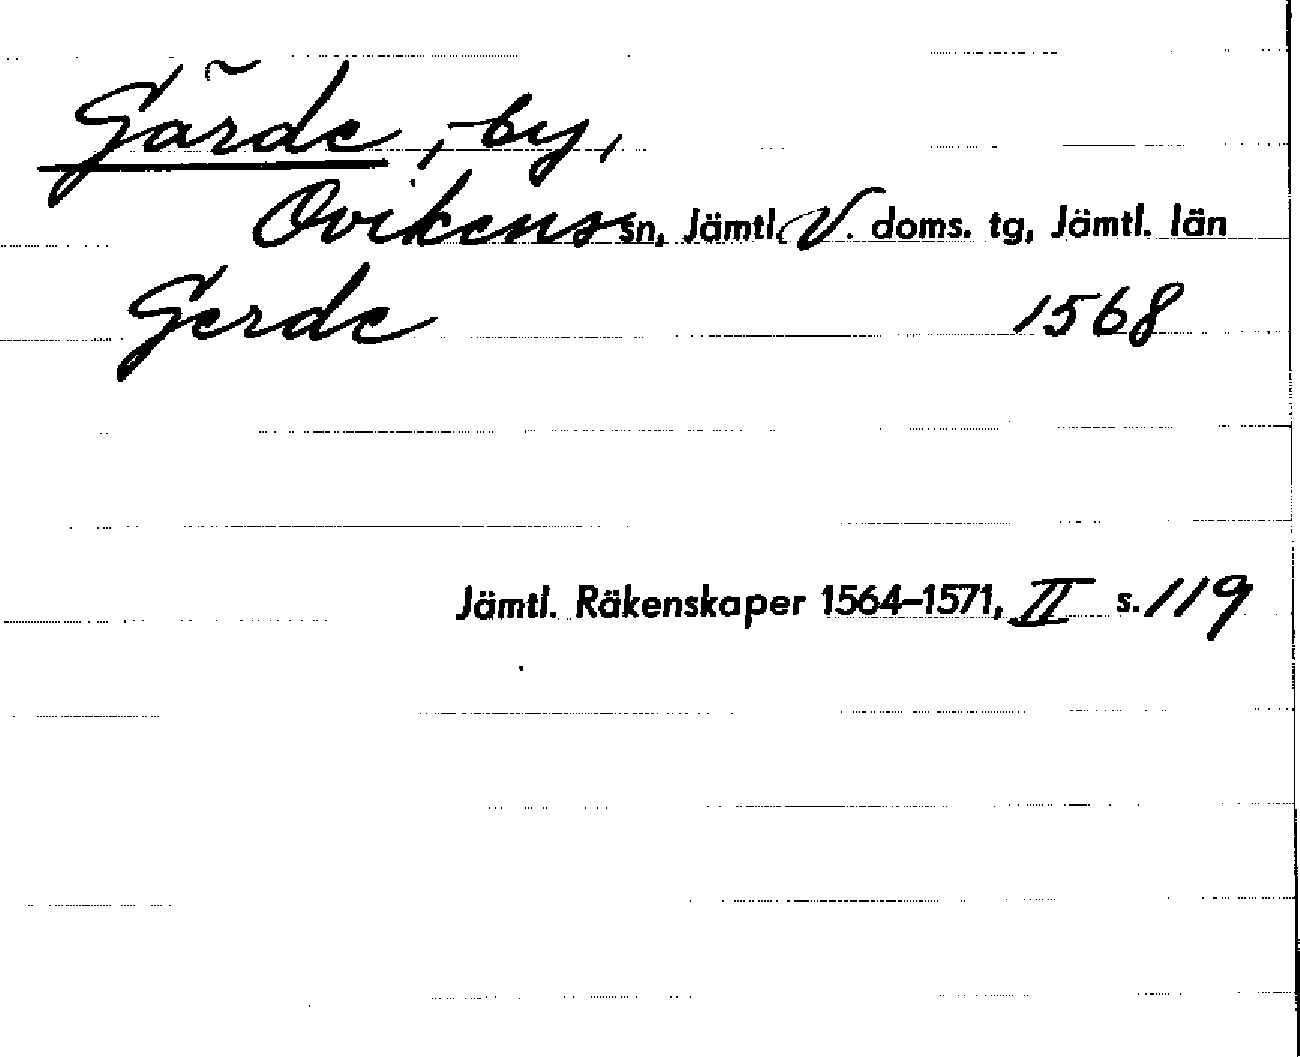 Gärde, by,
Ovikens sn, Jämtl. V. doms. tg, Jämtl. län
Gerde 1568
Jämtl. Räkenskaper 1564–1571, II s. 119